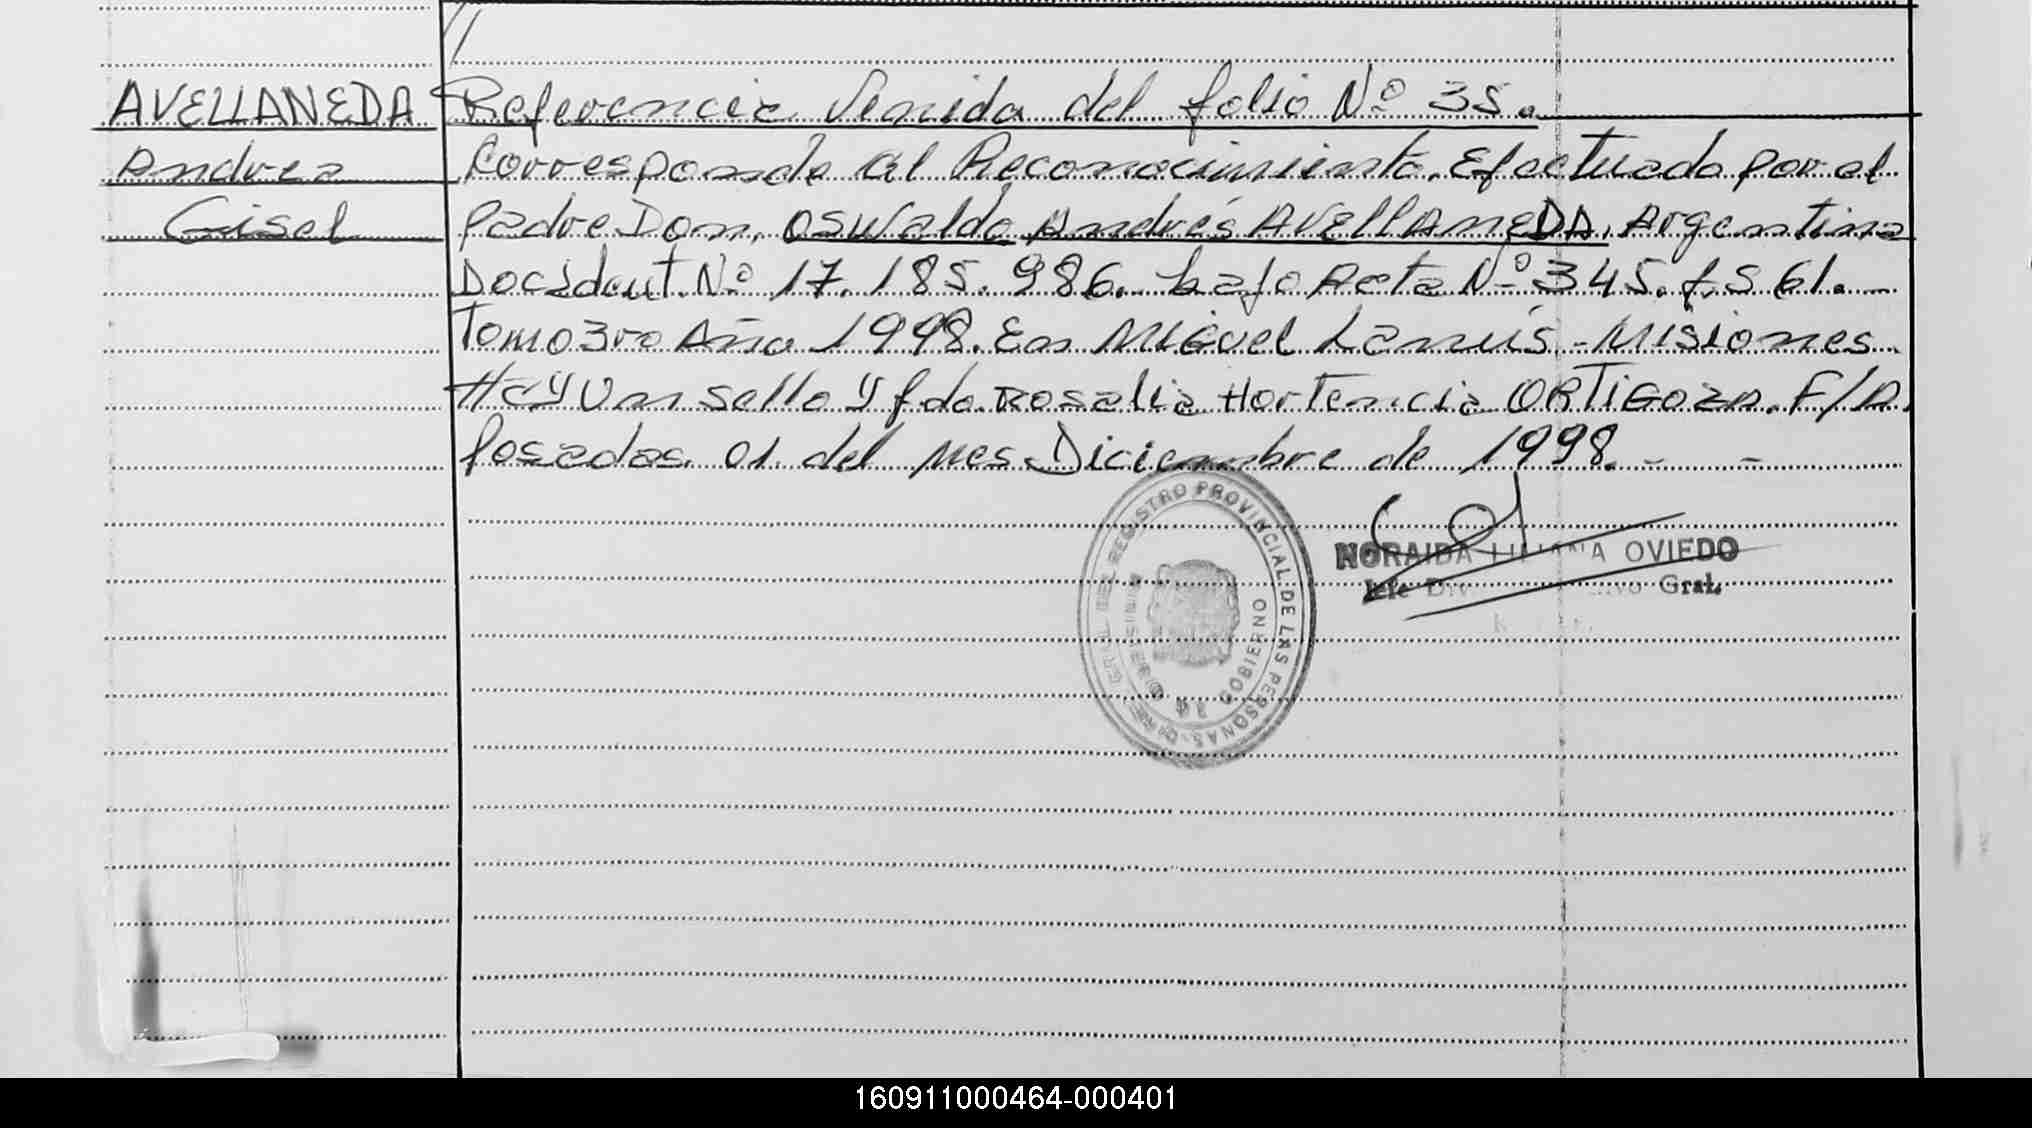 AVELLANEDA
Andrea
Gisel
Referencia Venida del folio Nº 35.
Corresponde al Reconocimiento. Efectuado por el
padre Don. OSWaldo Andrés AVEllANEDA. Argentino
Doc Ident. Nº 17.185.986. bajo Acta Nº 345. fs 61.
Tomo 3ro Año 1998. En Miguel Lanús - Misiones.
Hay Un sello y fdo. Rosalia Hortencia ORTIGOZA. F/A.
Posadas. 01. del mes Diciembre de 1998. - -
REGISTRO PROVINCIAL DE LAS PERSONAS
GOBIERNO
MISIONES
NORAIDA LILIANA OVIEDO
Jefe Div. Gral.
160911000464-000401